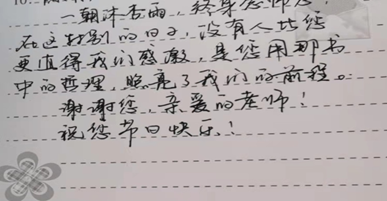 一朝沐杏雨，终身念师恩！
在这特别的日子，没有人比您
更值得我们感激，是您用那书
中的哲理，照亮了我们的前程。
谢谢您，亲爱的老师！
祝您节日快乐！